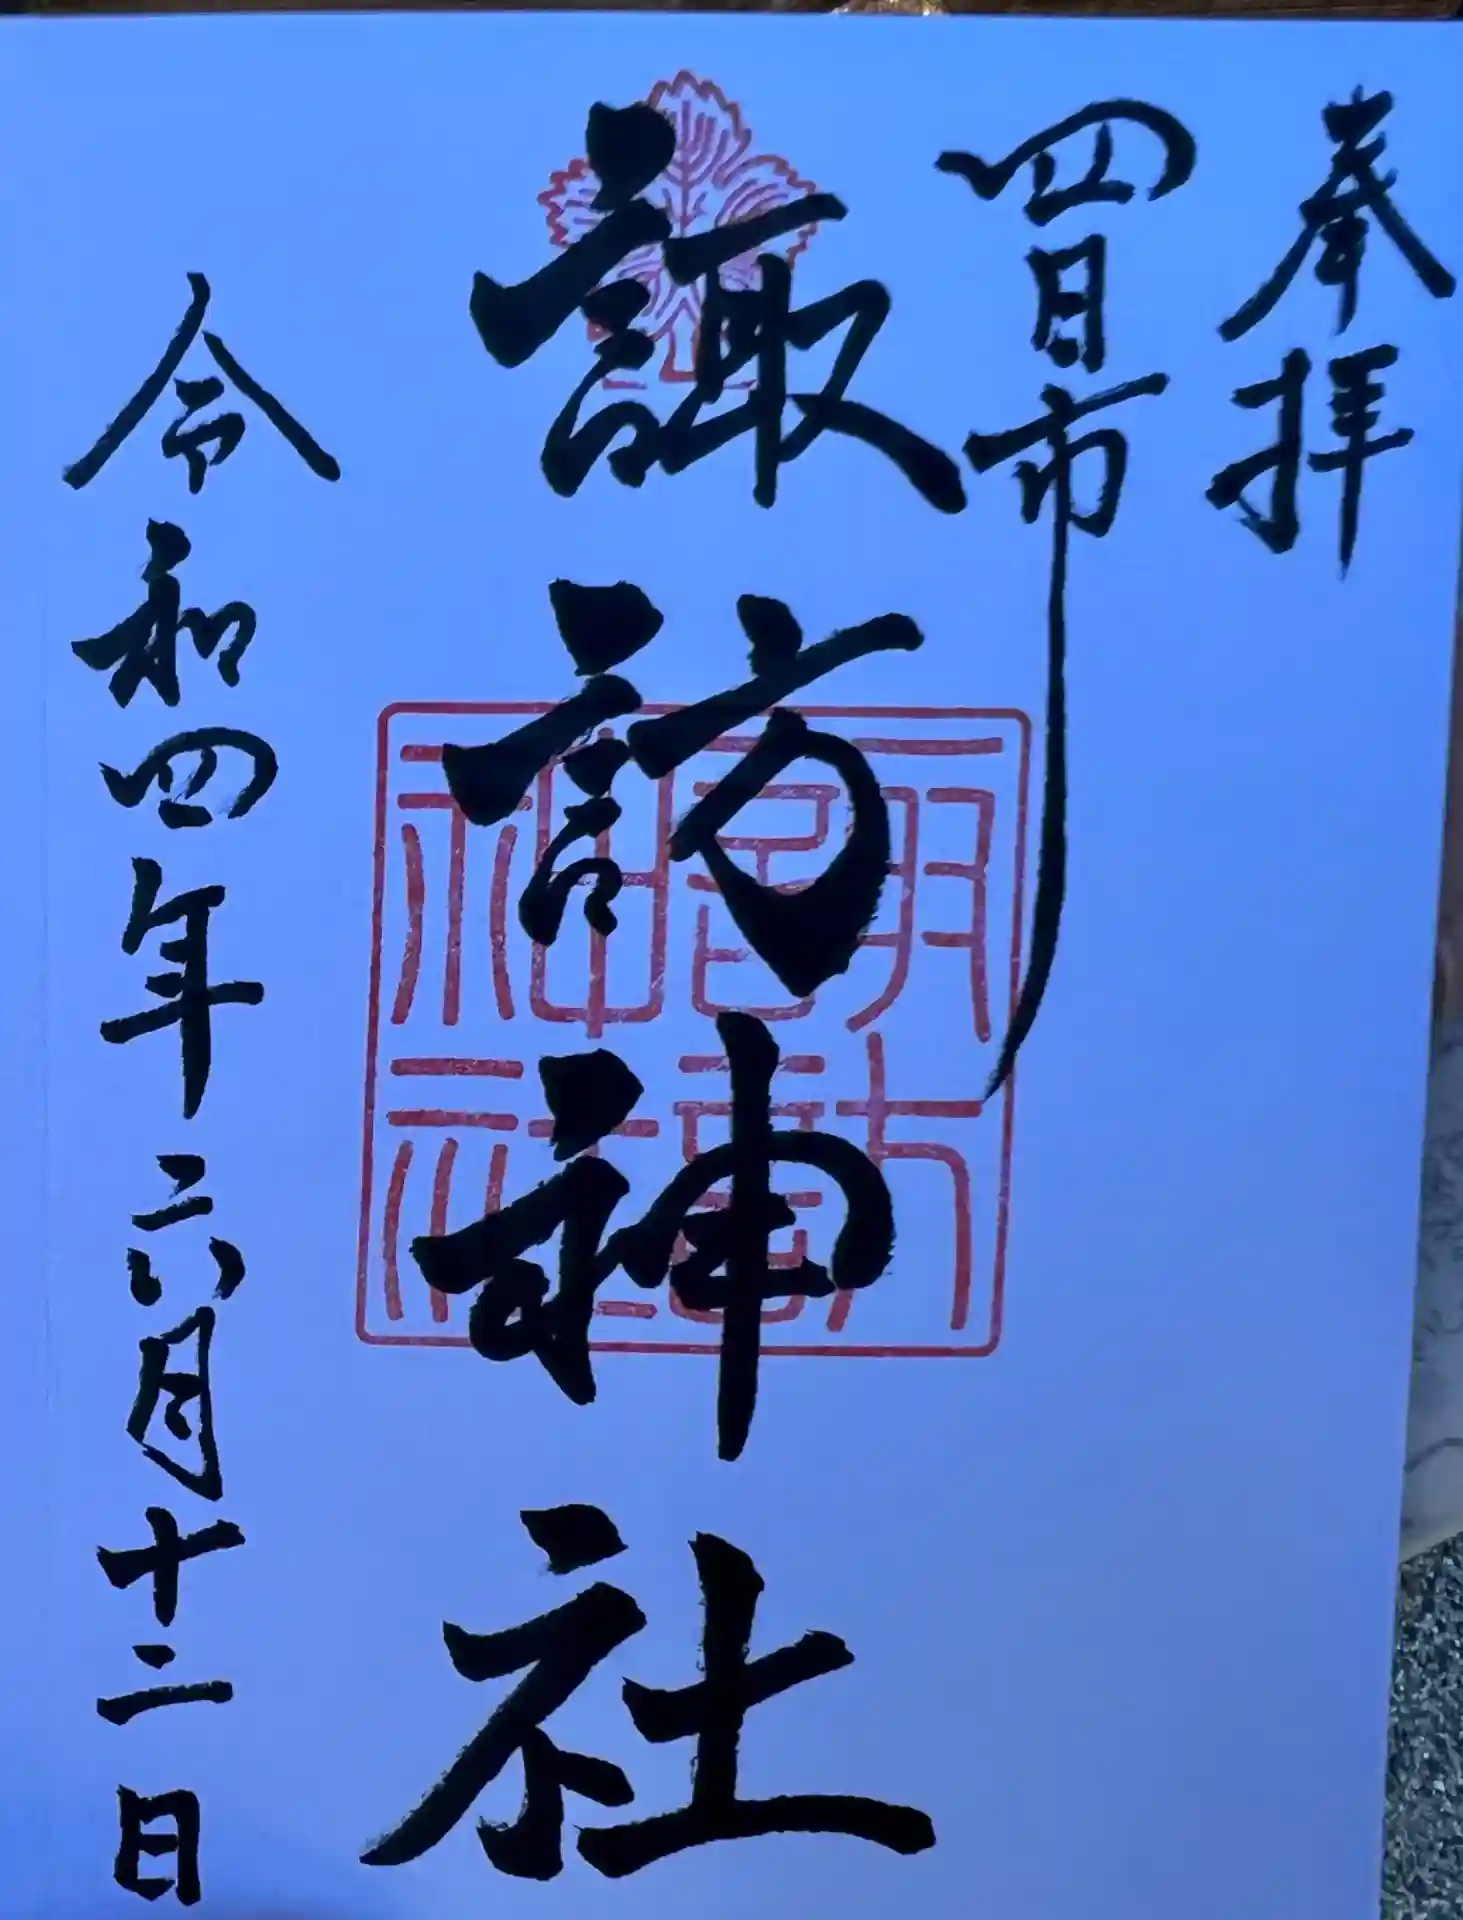 奉拝
四日市
諏訪神社
諏訪神社
令和四年六月十二日